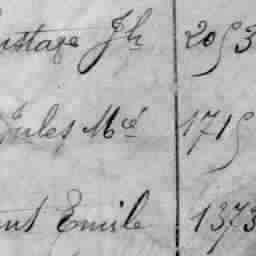 ustave Jh 2053
Jules Mcé 1715
ent Emile 1373